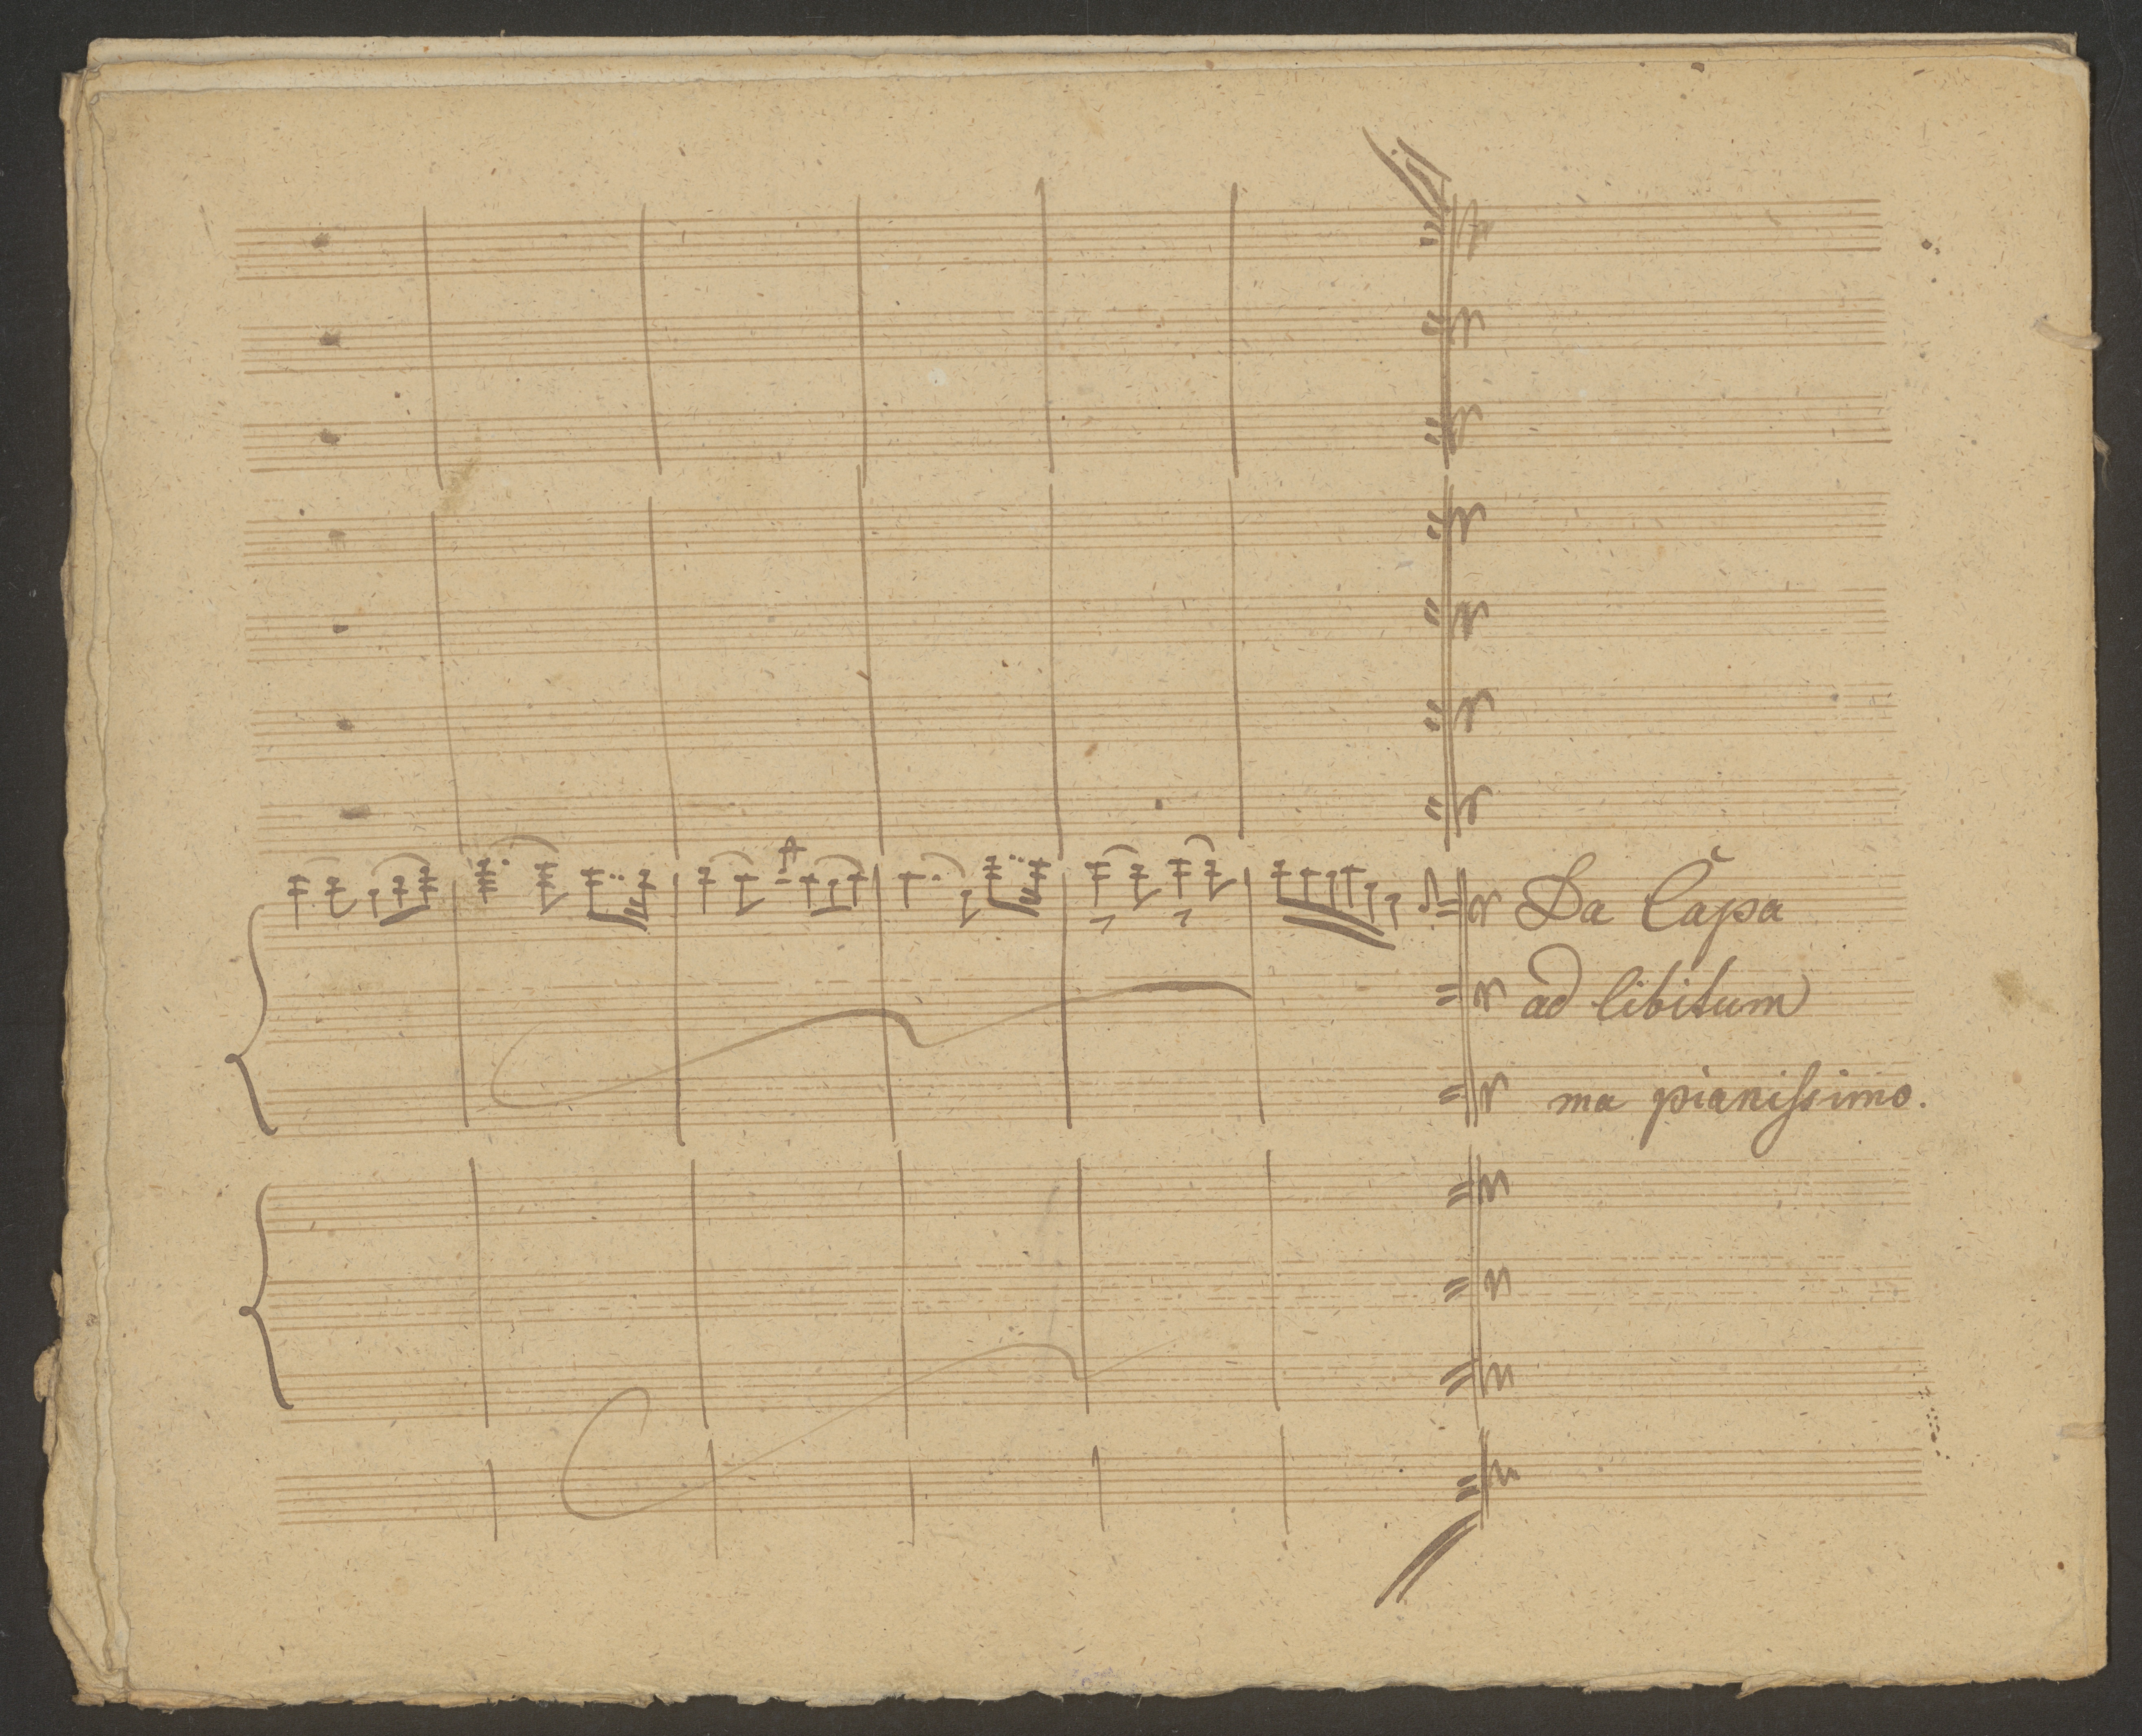 Da Capa
ad libitum
ma pianiſsimo.